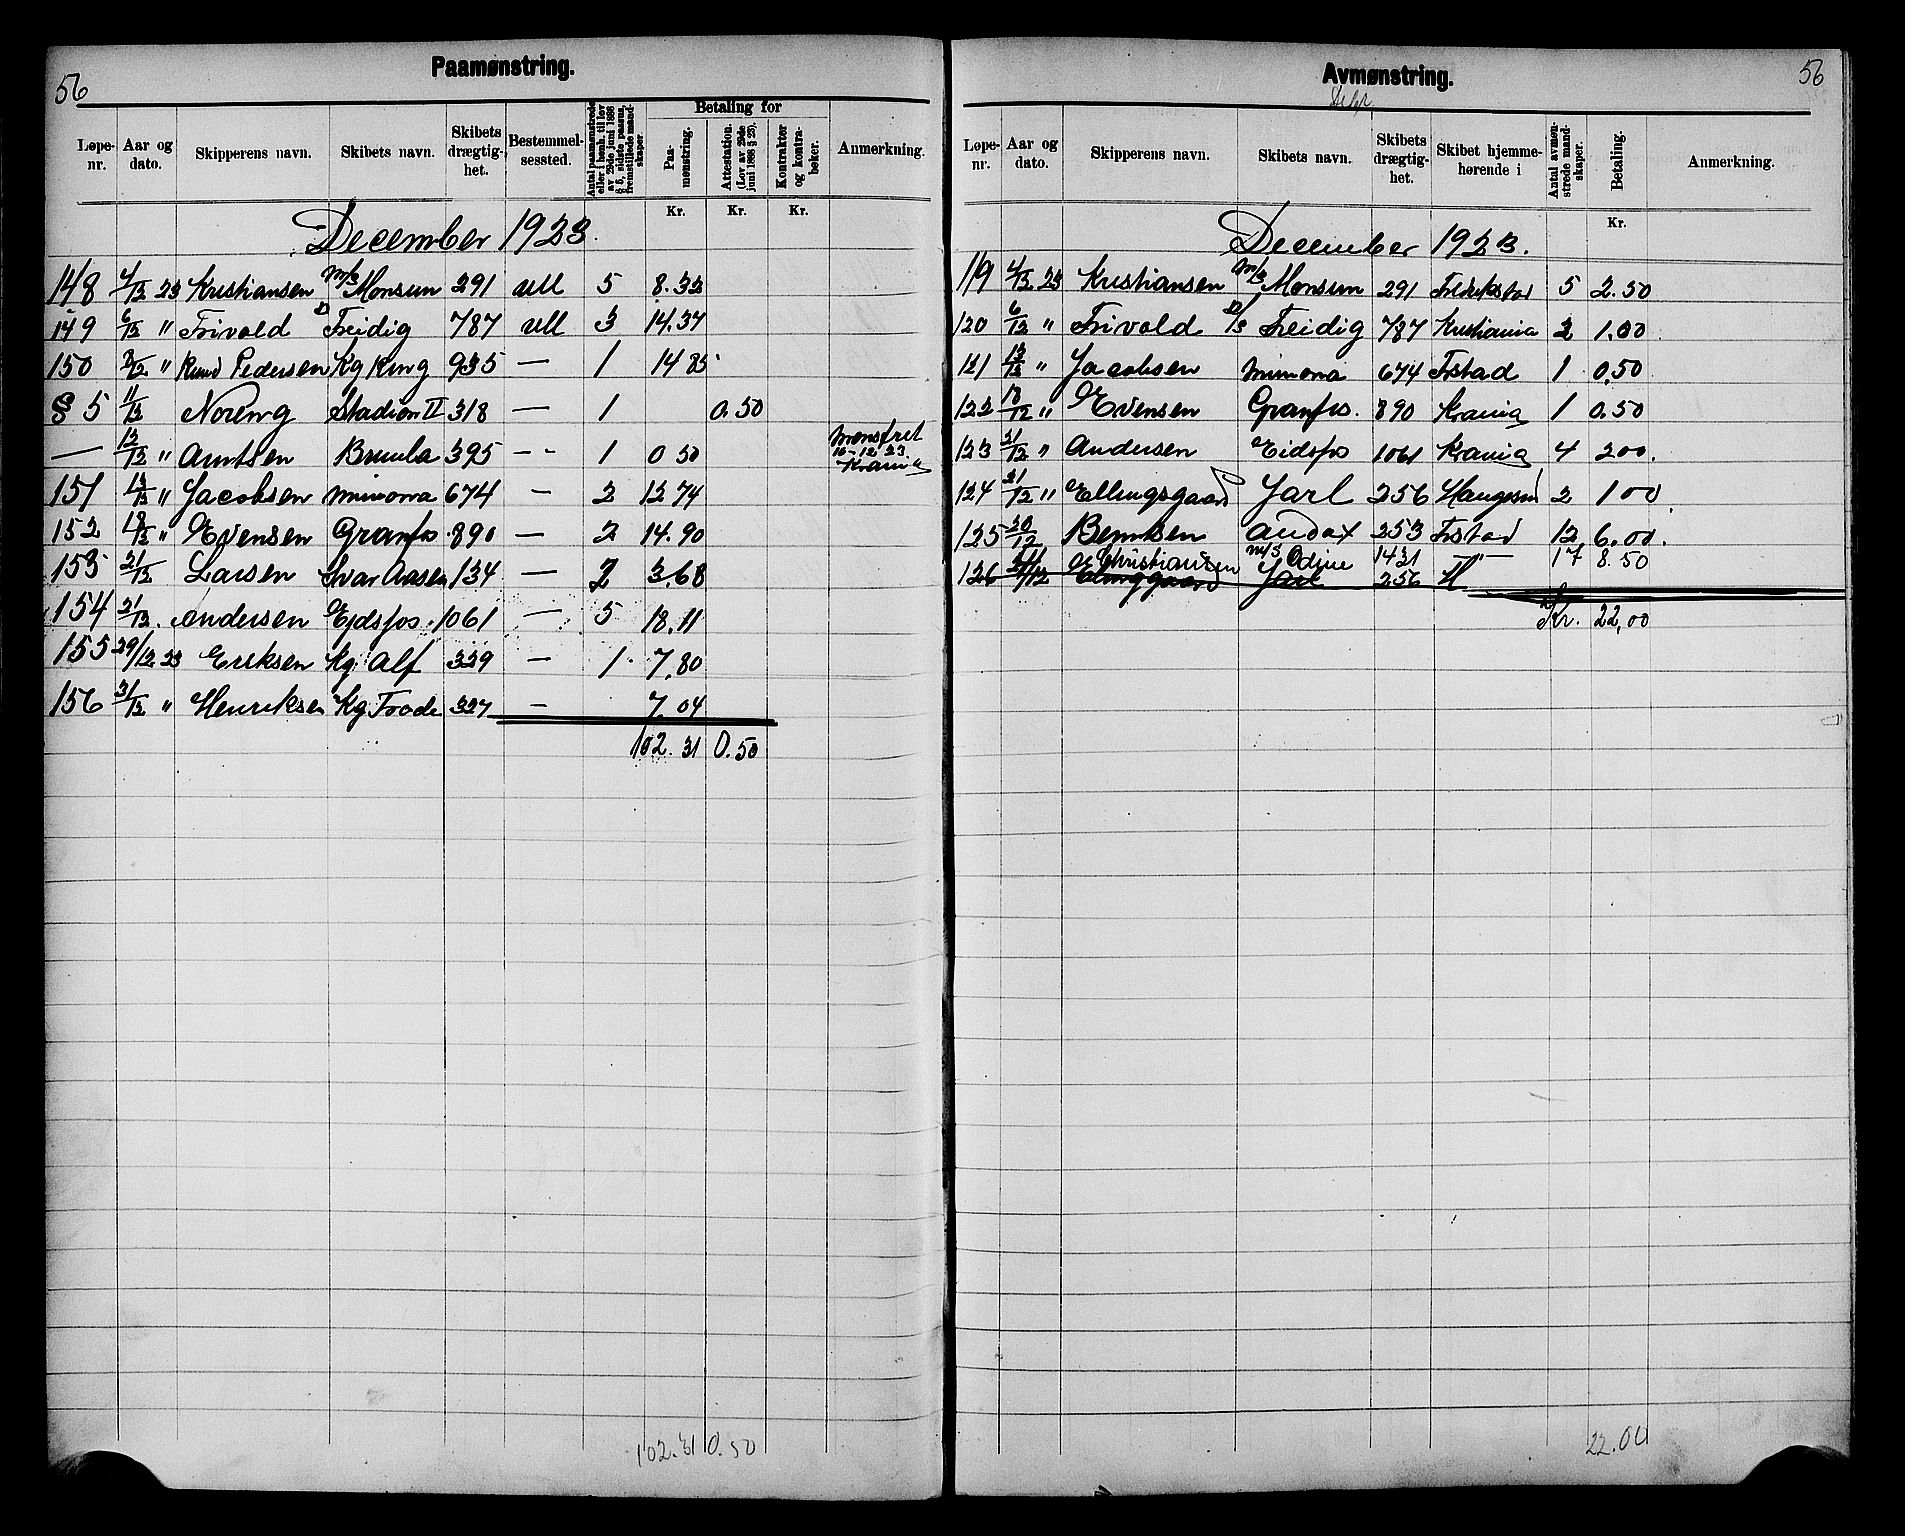 56
Paamønstring.
Løpe-nr. Aar og dato. Skipperens navn. Skibets navn. Skibets drægtig-het. Bestemmel-sessted. Antal paamønstrede eller i henh. til lov av 29de juni 1888 § 5, sidste passus, fremstillede mand-skaper Betaling for Paa-mønstring. Attestation. (Lov av 29de juni 1888 § 23). Kontrakter og kontra-bøker. Anmerkning.
Kr. Kr. Kr.
December 1923.
148 4/12 23 Kristiansen m/s Monsun 291 Ull 5 8.32
149 6/12 " Trivold D Freidig 787 Ull 3 14.37
150 8/12 " Knud Pedersen Kg Ring 935 — 1 14 85
§ 5 11/12 Noreng Stadion II 318 — 1 0.50
— 12/12 " Arntsen Brumla 395 - - 1 0 50 Mønstret 10-12 23 Krania
151 13/12 " Jacobsen Mimona 674 — 2 12 74
152 18/12 " Evensen Granfos 890 — 2 14.90
153 21/12 Larsen Ivar Aasen 134 — 2 3.68
154 21/12. Andersen Ejdsfos 1061 — 5 18.11
155 29/12 23 Eriksen Kg Alf 329 — 1 7.80
156 31/12 " Henriksen Kg Frode 327 — 7.04
102.31 0.50
102.31 0.50
56
Avmønstring.
Løpe-nr. Aar og dato. Skipperens navn. Skibets navn. Skibets drægtig-het. Skibet hjemme-hørende i Antal avmøn-strede mand-skaper. Betaling. Anmerkning.
Kr.
December 1923.
119 4/12 23 Kristiansen m/s Monsun 291 Fredrikstad 5 2.50
120 6/12 " Trivold D/s Freidig 787 Kristiania 2 1.00
121 13/12 " Jacobsen Mimona 674 Frstad 1 0.50
122 18/12 " Evensen Granfos. 890 Krania 1 0.50
123 21/12 " Andersen Eidsfos 1061 Krania 4 200.
124 21/12 " Ellingsgaard Jarl 256 Haugesund 2 1 00
125 20/12 Berntsen Audax 253 Frstad 12 6.00.
Christiansen m/s Odine 1431 — " — 17 8.50
126 31/12 Elinggaard Jarl 256 H
Kr. 22,00
22.00